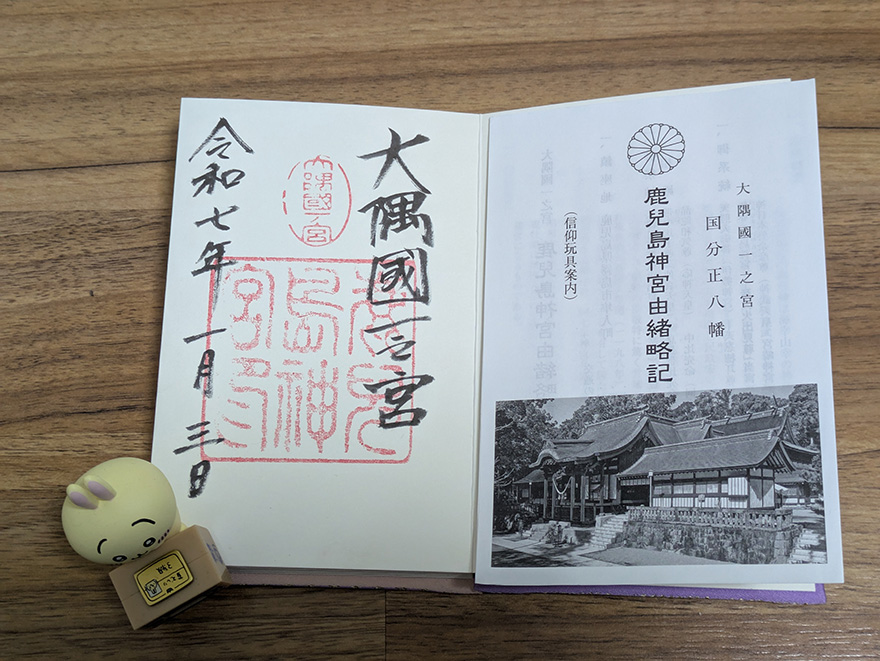 大隅國一之宮
国分正八幡
鹿兒島神宮由緒略記
(信仰玩具案内)
大隅國一之宮
大隅國一宮
鹿兒
島神
宮印
令和七年一月三日